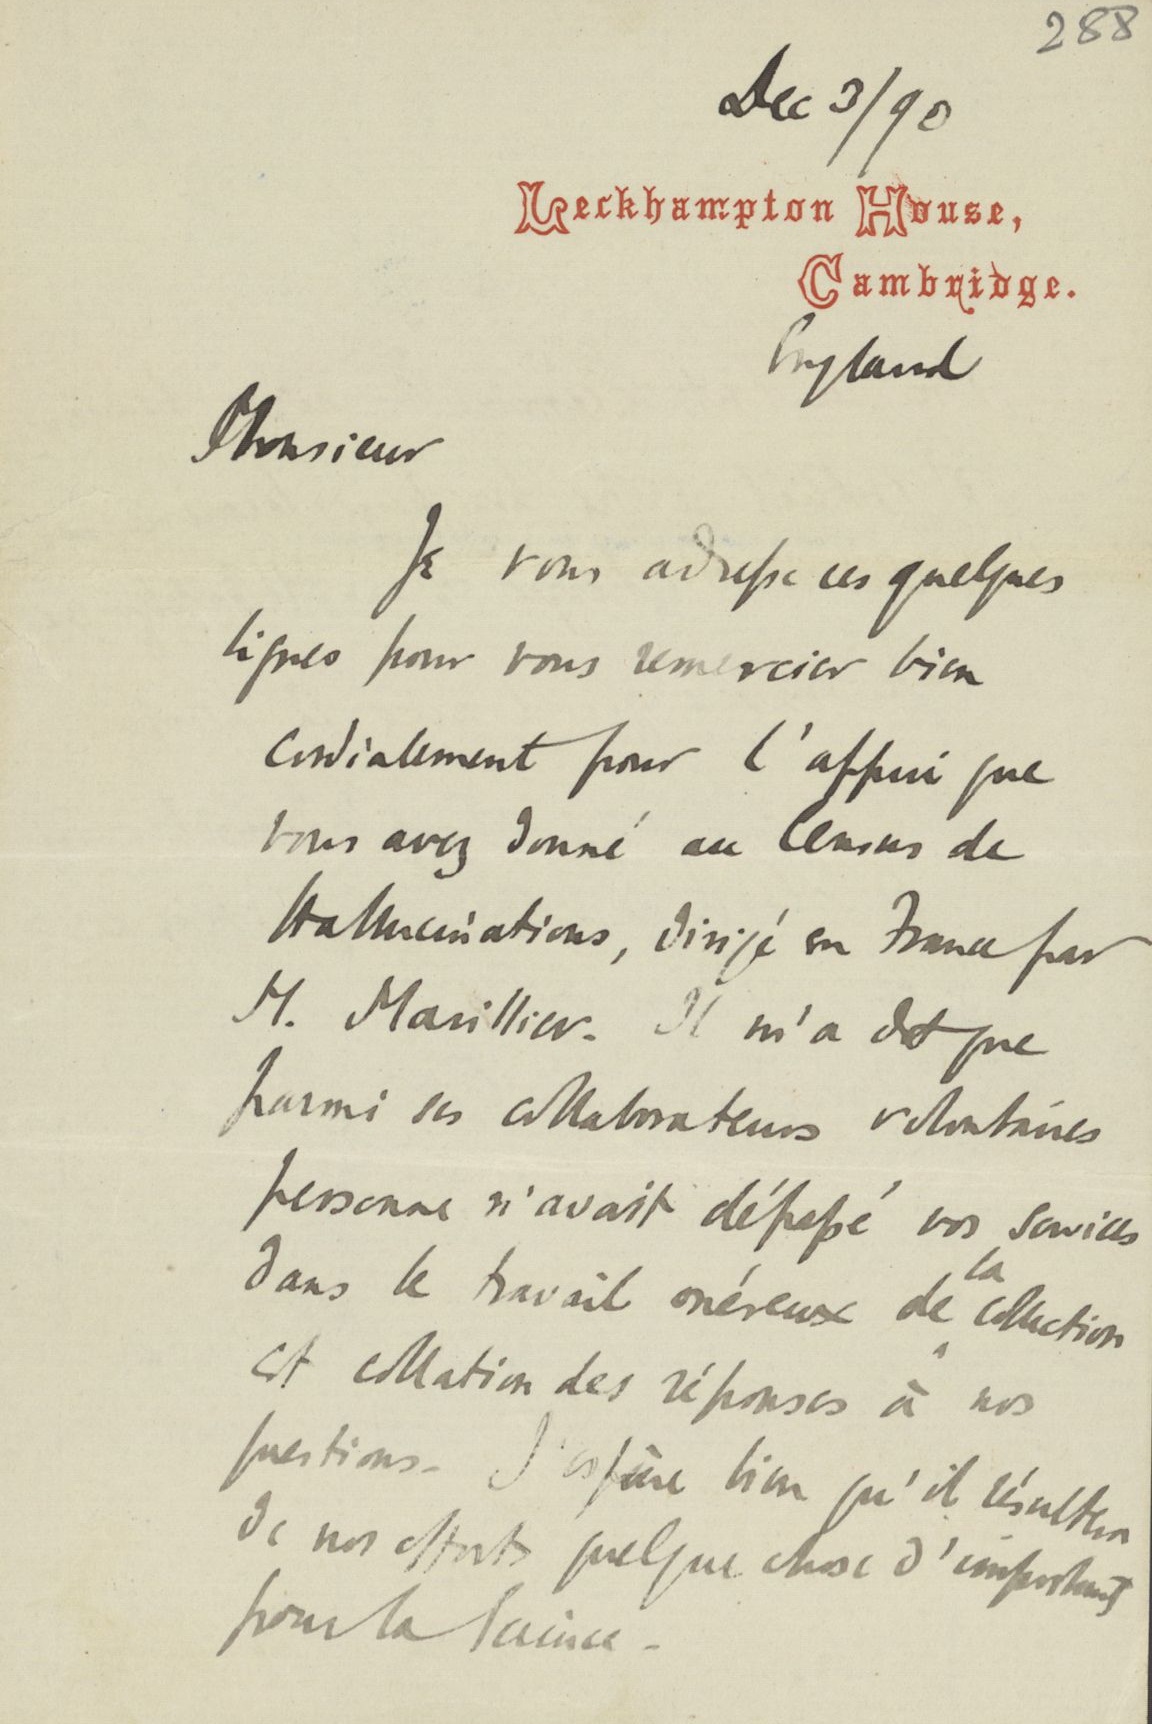 288
Dec 3/90
Leckhampton House,
Cambridge.
England
Monsieur
Je vous adresse ces quelques
lignes pour vous remercier bien
cordialement pour l'appui que
vous avez donné au Census de
Hallucinations, dirigé en France par
M. Marillier. Il m'a dit que
parmi ses collaborateurs volontaires
personne n'avait dépassé vos services
dans le travail onéreux de la collection
et collation des réponses à nos
questions. J'espère bien qu'il résultera
de nos efforts quelque chose d'important
pour la Science.